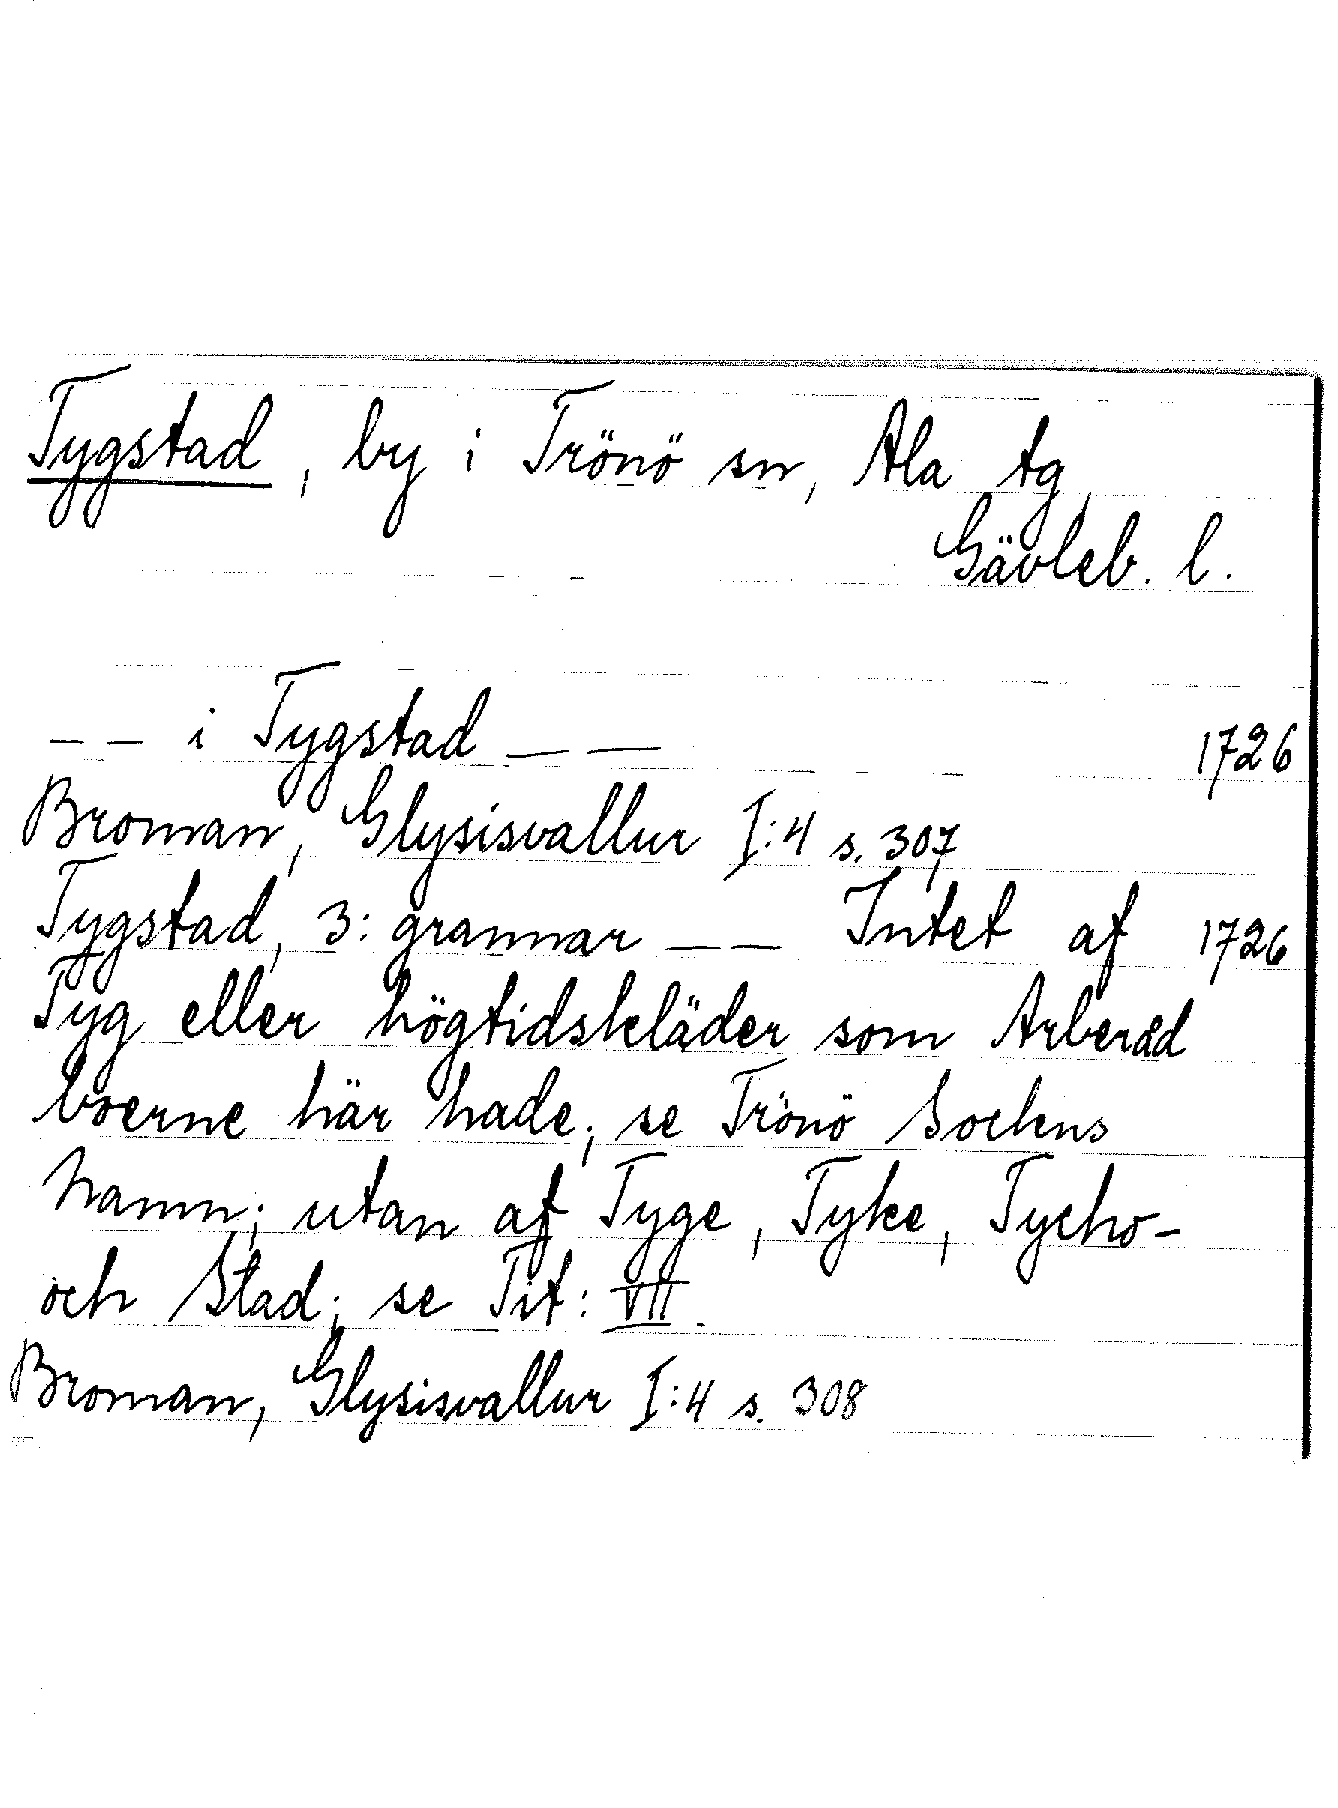 Tygstad, by i Trönö sn, Ala tg,
Gävleb. l.
– – i Tygstad – – 1726
Broman, Glysisvallur I:4 s. 307
Tygstad, 3: grannar – – Intet af 1726
Tyg eller högtidskläder som Arberåd
boerne här hade; se Trönö Sockns
Namn; utan af Tyge, Tyke, Tycho-
och Stad; se Tit: VII.
Broman, Glysisvallur I:4 s. 308